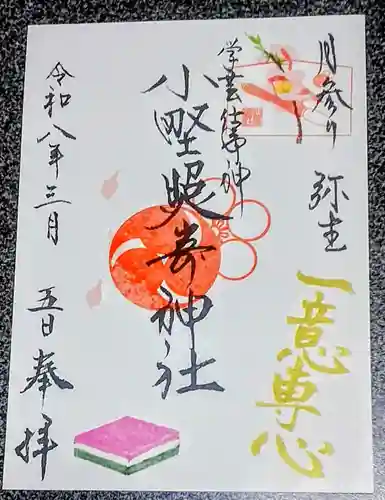 月参り 弥生
一意専心
学芸仕事神
小野照嵜神社
令和八年三月 五日奉拝